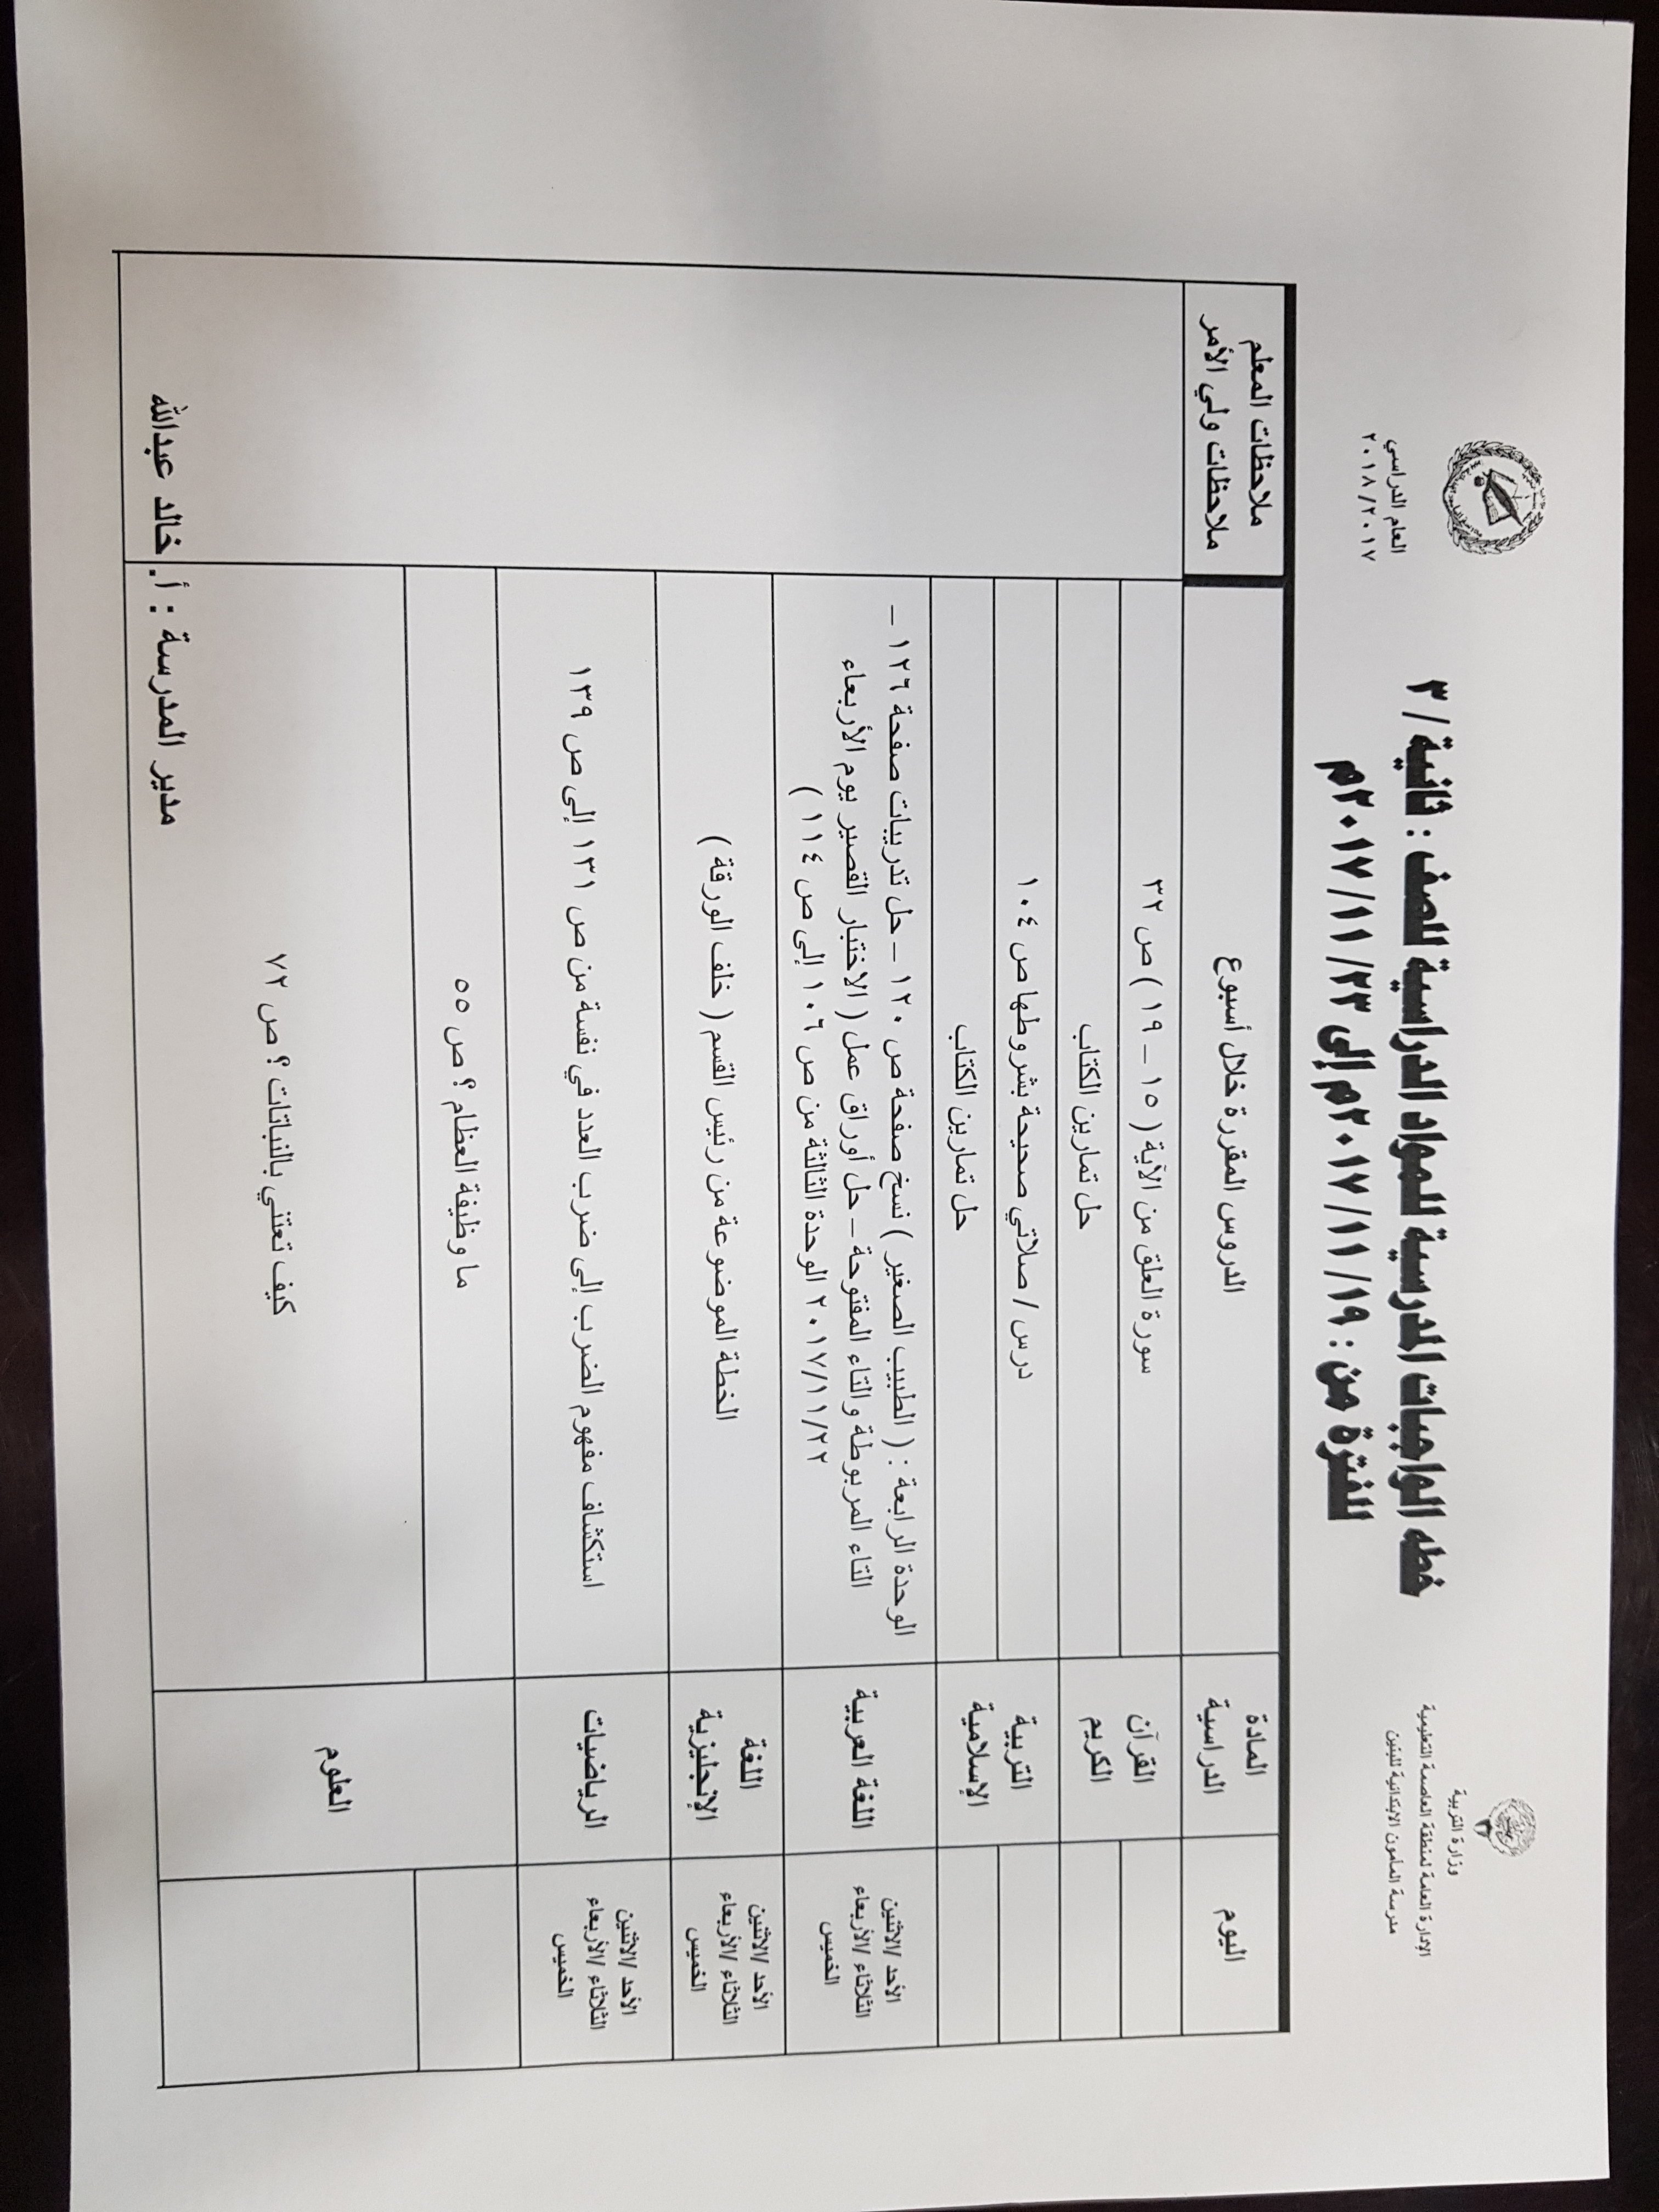 وزارة التربية
الإدارة العامة لمنطقة العاصمة التعليمية
مدرسة المأمون الابتدائية للبنين
العام الدراسي
٢٠١٨/٢٠١٧
خطه الواجبات المدرسية للمواد الدراسية للصف : ثانية / ٣
للفترة من : ٢٠١٧/١١/١٩م إلى ٢٠١٧/١١/٢٣م
اليوم
المادة
الدراسية
الدروس المقررة خلال أسبوع
ملاحظات المعلم
ملاحظات ولي الأمر
القرآن
الكريم
سورة العلق من الآية ( ١٥ – ١٩ ) ص ٣٢
حل تمارين الكتاب
التربية
الإسلامية
درس / صلاتي صحيحة بشروطها ص ١٠٤
حل تمارين الكتاب
الأحد /الاثنين
الثلاثاء /الأربعاء
الخميس
اللغة العربية
الوحدة الرابعة : ( الطبيب الصغير ) نسخ صفحة ص ١٢٠ – حل تدريبات صفحة ١٢٦ –
التاء المربوطة والتاء المفتوحة – حل أوراق عمل ( الاختبار القصير يوم الأربعاء
٢٠١٧/١١/٢٢ الوحدة الثالثة من ص ١٠٦ إلى ص ١١٤ )
الأحد /الاثنين
الثلاثاء /الأربعاء
الخميس
اللغة
الإنجليزية
الخطة الموضوعة من رئيس القسم ( خلف الورقة )
الأحد /الاثنين
الثلاثاء /الأربعاء
الخميس
الرياضيات
استكشاف مفهوم الضرب إلى ضرب العدد في نفسة من ص ١٣١ إلى ص ١٣٩
العلوم
ما وظيفة العظام ؟ ص ٥٥
كيف تعتني بالنباتات ؟ ص ٧٢
مدير المدرسة : أ. خالد عبدالله